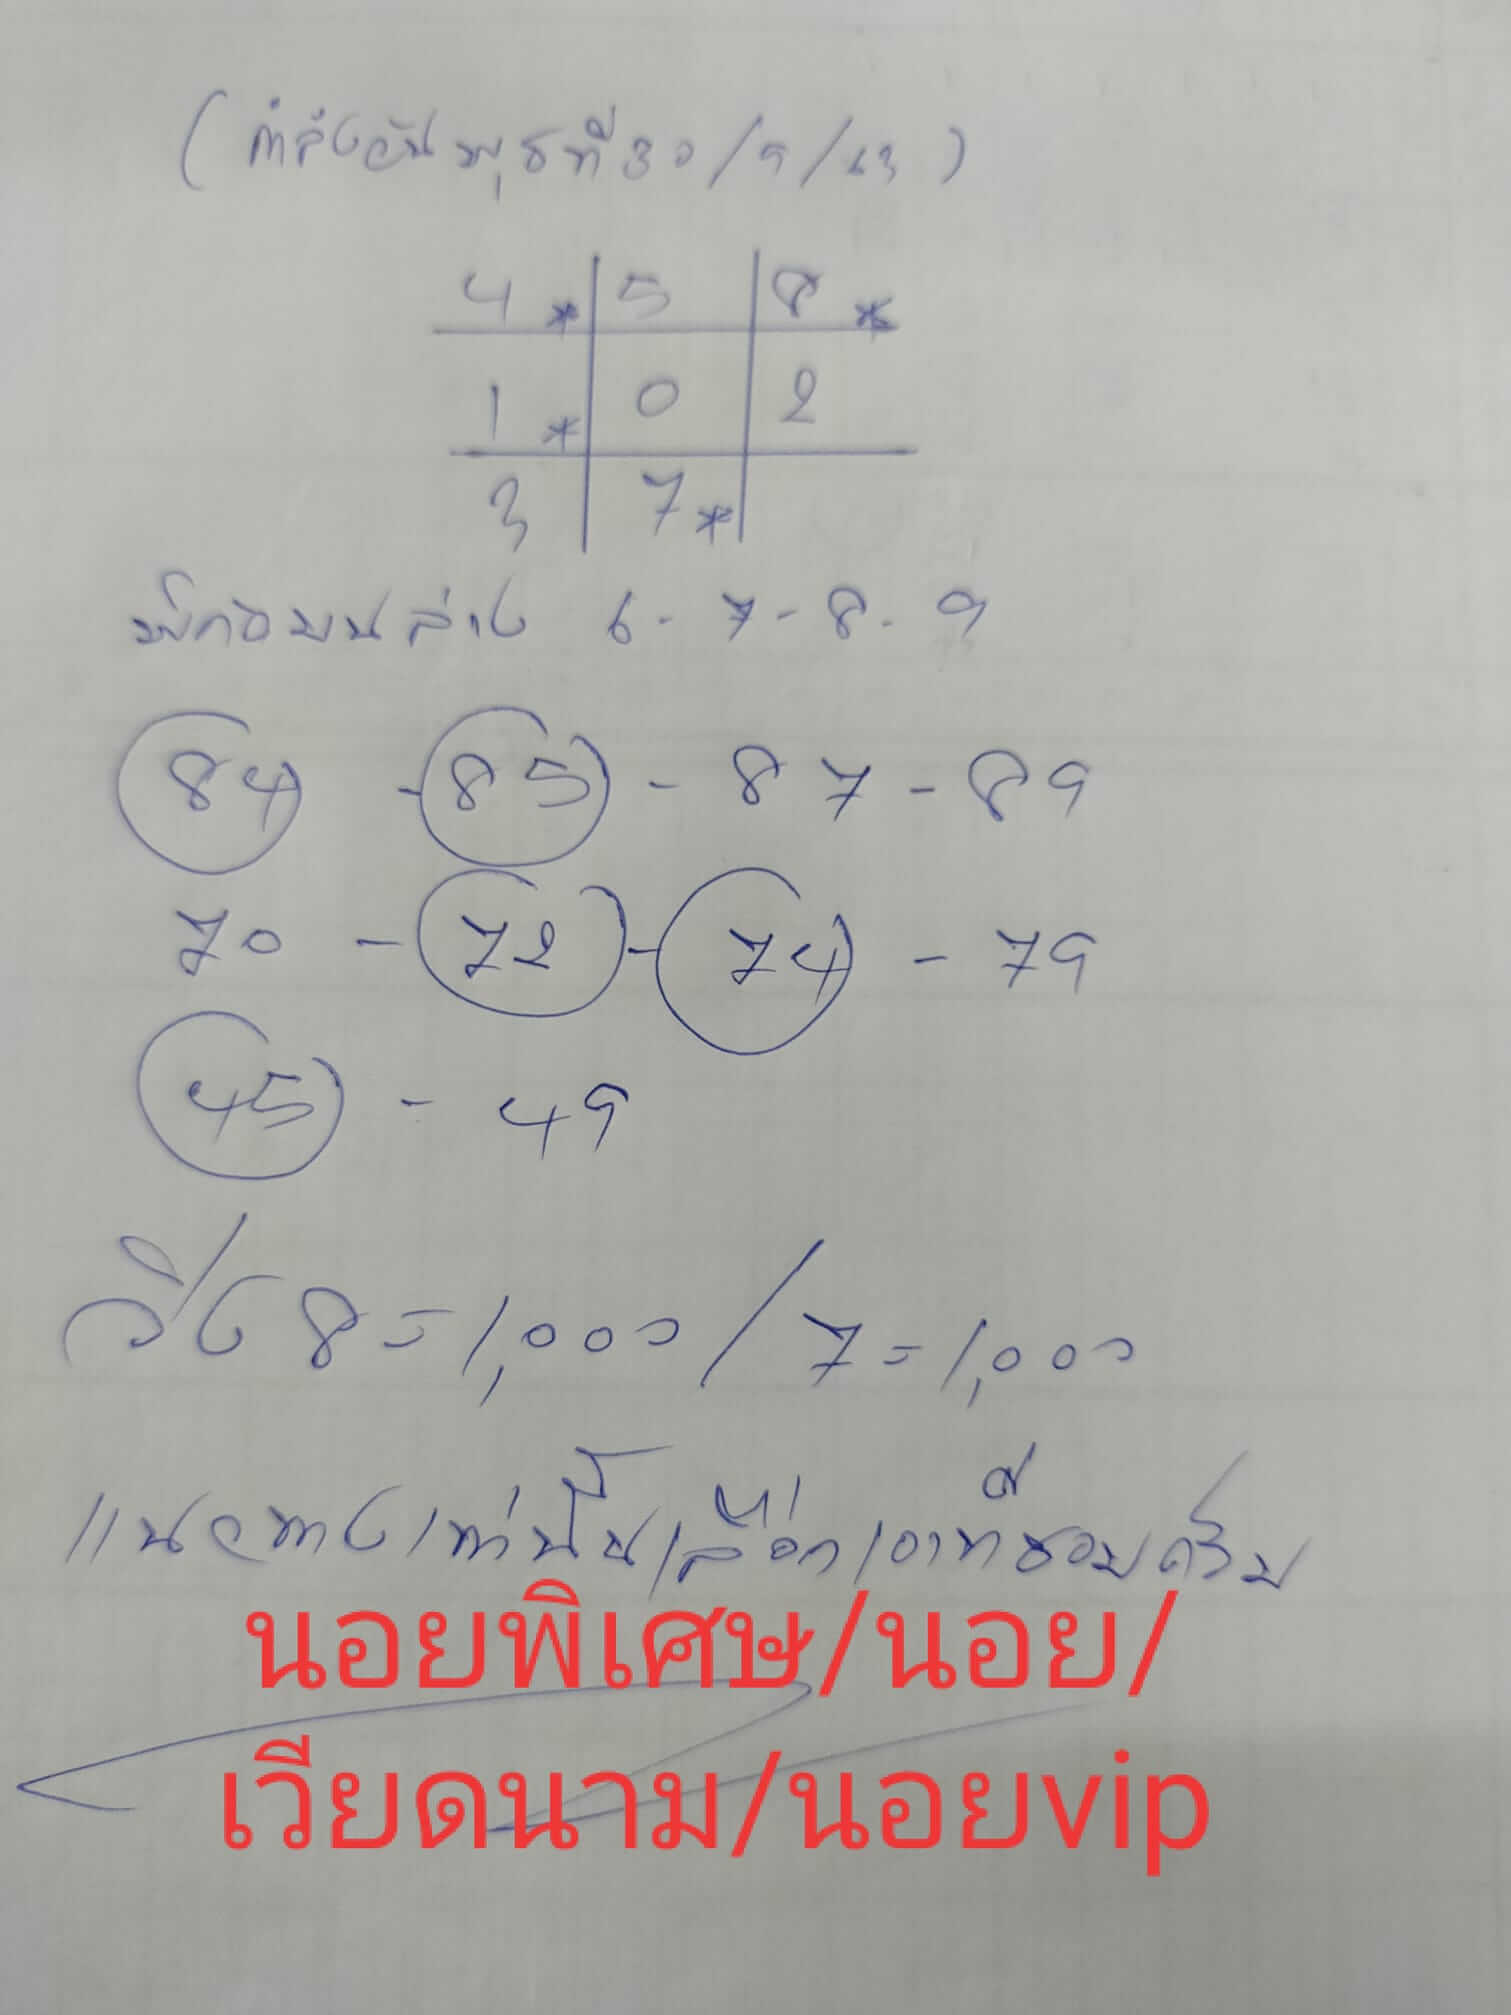 (กำลังวันพุธที่30/9/63)
4* 5 8*
1* 0 2
3 7*
บนล่าง 6-7-8-9
84 - 85 - 87 - 89
70 - 72 - 74 - 79
45 - 49
วิ่ง 8=1,000/7=1,000
แนวทางเท่านั้นเลือกเอาที่ชอบครับ
นอยพิเศษ/นอย/
เวียดนาม/นอยvip